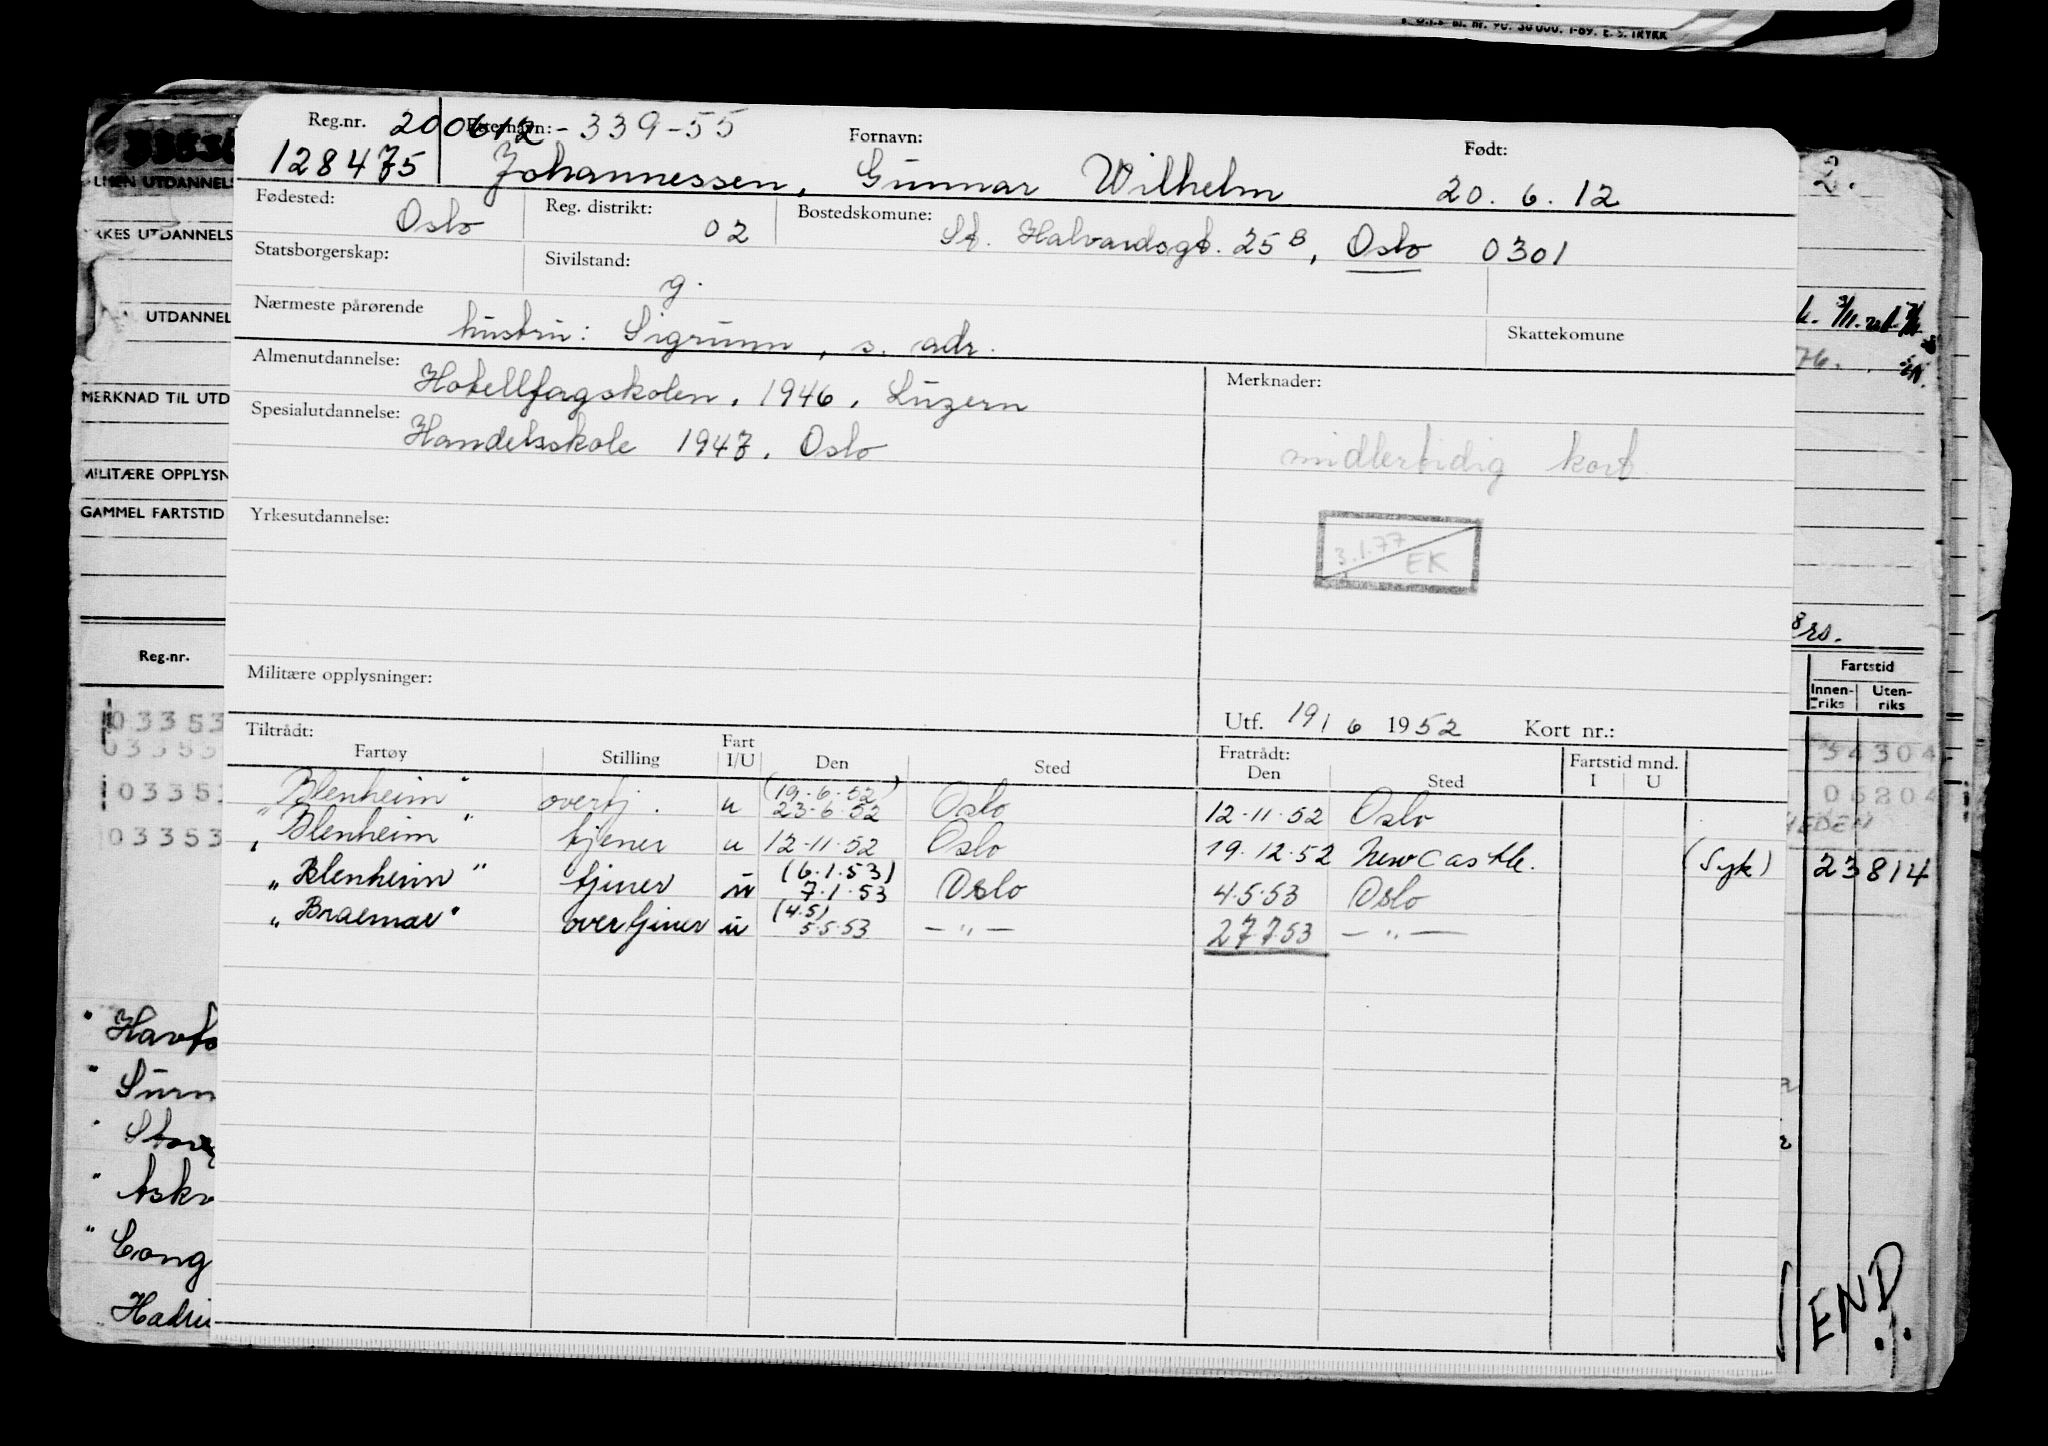 F. O.I.s bl. nr. 90. 30 000. 1-69. E. S. TRYKK
Reg.nr. 200612 Etternavn: -339-55 Fornavn: Født:
128475 Johannessen, Gunnar Wilhelm 20.6.12
Fødested: Oslo Reg. distrikt: 02 Bostedskomune: St. Halvardsgt. 25 B, Oslo 0301
Statsborgerskap: Sivilstand: g.
Nærmeste pårørende hustru: Sigrunn, s. adr. Skattekomune
Almenutdannelse: Hotellfagskolen, 1946, Luzern Merknader:
Spesialutdannelse: Handelsskole 1947, Oslo
midlertidig kort
Yrkesutdannelse:
3.1.77 EK
Militære opplysninger:
Utf. 19/6 1952 Kort nr.:
Tiltrådt: Fratrådt:
Fartøy Stilling Fart I/U Den Sted Den Sted Fartstid mnd. I U
"Blenheim" overtj. u (19.6.52) 23-6.52 Oslo 12-11.52 Oslo
"Blenheim" tjener u 12-11.52 Oslo 19.12.52 Newcastle. (Syk)
"Blenheim" tjener u (6.1.53) 7.1.53 Oslo 4.5.53 Oslo
"Braemar" overtjener u (4.5) 5.5.53 — " — 27.7.53 — " —
UTDANNELS
RKES UTDANNELS
UTDANNEL
MERKNAD TIL UTD
MILITÆRE OPPLYSN
GAMMEL FARTSTID
Reg.nr.
03353
03353
03353
03353
Havfo
Surn
Stor
Askv
Cong
Hadri
2.
76.
Fartstid
Innen-
riks
Uten-
riks
34304
06204
HEDEN
23814
END